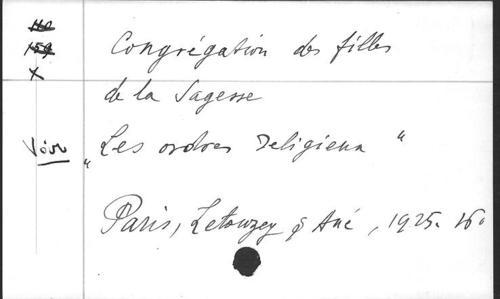 Congrégation des filles
de la Sagesse
Voir „Les ordres religieux“
Paris, Letouzey & Ané, 1925. 16°